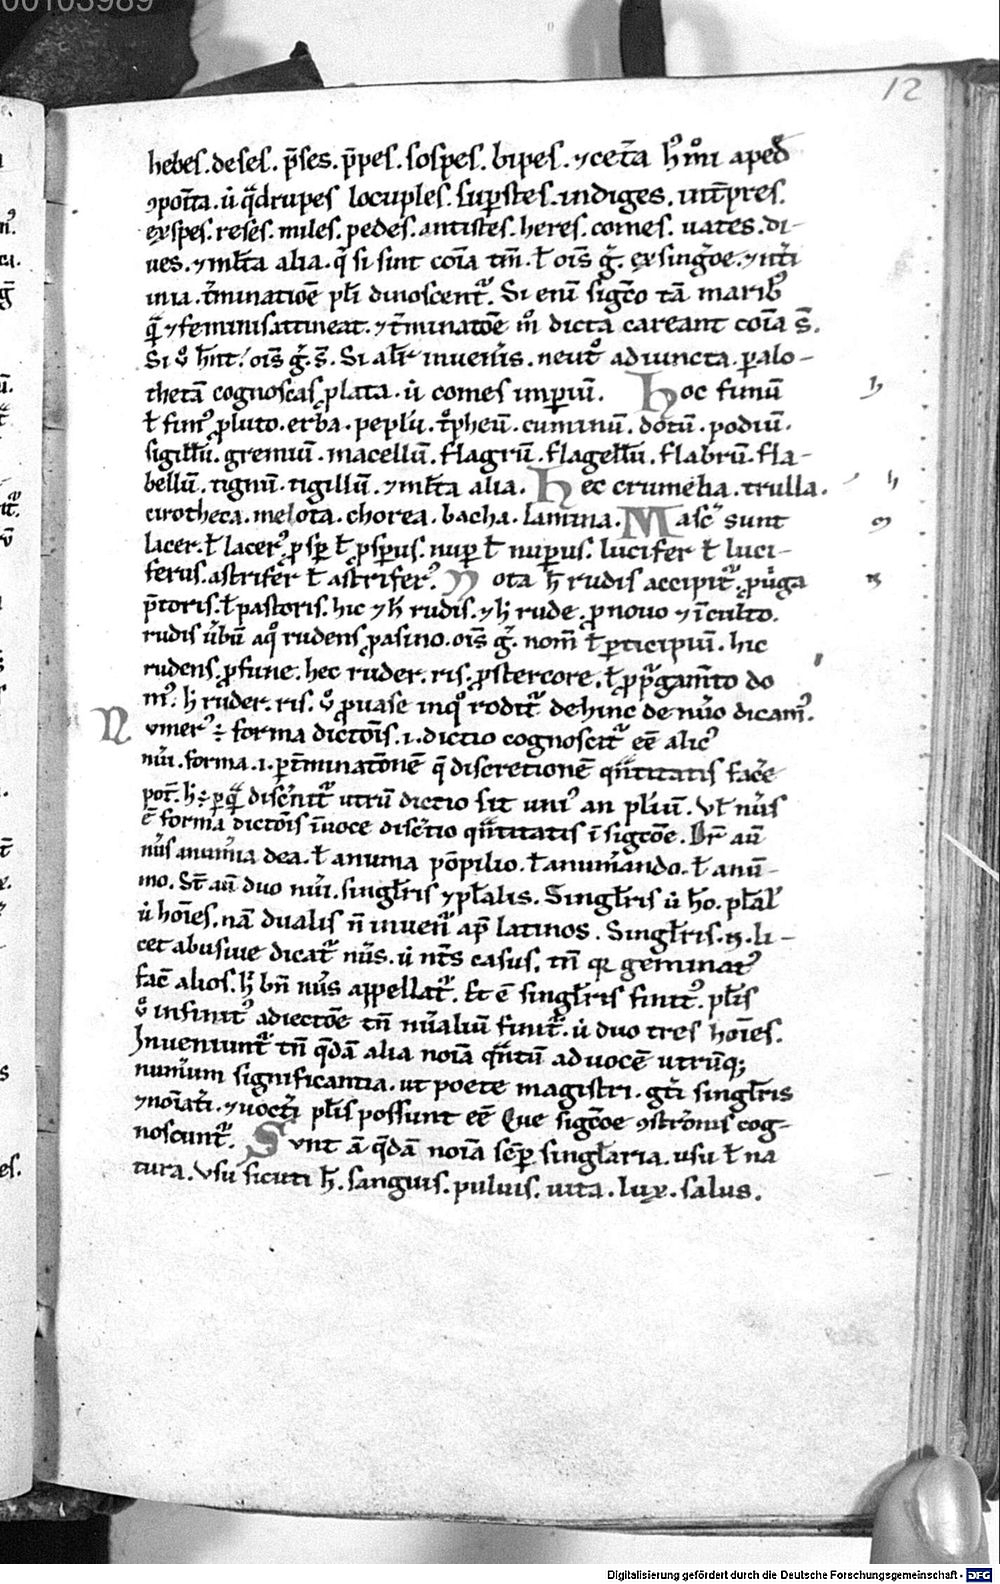 00103989
12
hebes. deses. p̄ses. p̄pes. sospes. bipes. ⁊ ceta̅ hͥ mͦi aped̅
ꝯpoīta. u̇ q̄drupes locuples. suꝑstes. indiges. int̄pres.
exspes. reses. miles. pedes. antistes. heres. comes. uates. di-
ues. ⁊ ml̅ta alia. q̄ si sint co̅ia tm̅. ł ois̅ g̅.
una. t̅minatio̅e pl̅i dinoscent᷑. Si eni̅ sig̅to ta̅ marib᷒
q̄ ⁊ feminis attineat. ⁊ t̅minato̅e mͦ dicta careant co̅ia s̅.
Si ͦu h̅nt. ois̅ g̅. s̅. Si alit̅ inueneris. neutͦ adiuncta. ꝑ alo-
theta̅ cognoscas ꝓlata. u̇ comes imperiu̅. Hoc funu̅
ł fim᷒ ꝓ luto. erba. peplu̅. tͦpheu̅. cuminu̅. dotu̅. podiu̅.
sigillu̅. gremiu̅. macellu̅. flagru̅. flagellu̅. flabru̅. fla-
bellu̅. tignu̅. tigillu̅. ⁊ ml̅ta alia. Hec crumena. trulla.
cirotheca. melota. chorea. bacha. lamina. Masc̅ sunt
lacer. ł lacer᷒ ꝓspꝑ ł ꝓsꝑus. nuꝑ ł nuꝑus. lucifer ł luci-
ferus. astrifer ł astrifer᷒. Nota h̅ rudis accipit᷑. ꝓ u̅ga
p̄toris. ł pastoris. hic ⁊ h̅ rudis. ⁊ h̅ rude. ꝓ nouo ⁊ i̅culto.
rudis u̅bu̅ aqͦ rudens ꝓ asino. ois̅ g̅. nom̅ ł ꝑticipiu̅. hic
rudens. ꝓ fune. hec ruder. ris. ꝓ stercore. ł ꝓ
m᷒. h̅ ruder. ris. ͦu ꝓ uase inqͦ rodit᷑ dehinc de nu̅o dicam᷒.
Numer᷒ ÷ forma dicto̅is. .i. dictio cognoscit᷑ ee̅ alic᷒
nu̅i. forma .i. ꝑ t̅minato̅ne̅ q̄ discretione̅ qn̅titatis face̅
pot̅. h̅ ÷ ꝑ q̄ disc̅nit᷑ utru̅ dictio sit uni᷒ an pl̅iu̅. Vł nu̅s
e̅ forma dicto̅is i̅ uoce disc̅tio qn̅titatis i̅ sigto̅e. Dr̅ au̅
nu̅s a numia dea. ł a numa po̅pilio. ł a num̅ando. ł a nu̅-
mo. St̅ au̅ duo nu̅i. singl̅ris ⁊ pl̅alis. Singl̅ris u̇ h̅o. pl̅al̅
u̇ ho̅ies. na̅ dualis n̅ inueni᷑ ap̅ latinos. Singl̅ris. n̅. li-
cet abusiue dicat᷑ nu̅s. u̇ nt̅s casus. tn̅ qr̅ geminat᷒
fac̅ alios. h̅ bn̅ nu̅s appellat᷑. Et e̅ singl̅ris finit᷒. pl̅is
ͦu infinit᷒ adiecto̅e tn̅ nu̅aliu̅ finit᷑. u̇ duo tres ho̅ies.
Inueniunt᷑ tn̅ q̄da̅ alia no̅ia qn̅tu̅ ad uoce̅ utru̅q;
nume̅rum significantia. ut poete magistri. gt̅i singl̅ris
⁊ no̅iat̅i. ⁊ uoct̅i pl̅is possunt ee̅ Que sigto̅e ꝯstr̅onis cog-
noscunt᷑. Sunt a̅ q̄da̅ no̅ia se̅ꝑ singl̅aria. usu ł na
tura. Vsu sicuti h̅. sanguis. puluis. uita. lux. salus.
Digitalisierung gefördert durch die Deutsche Forschungsgemeinschaft - DFG